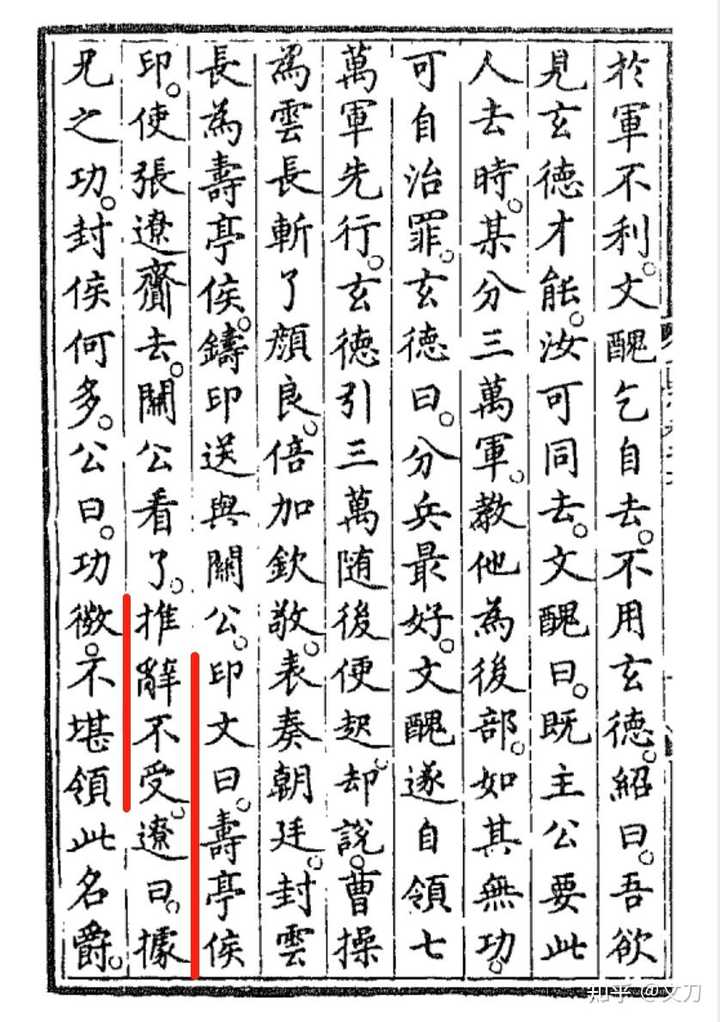 於軍不利。文醜乞自去。不用玄德。紹曰。吾欲
見玄德才能。汝可同去。文醜曰。既主公要此
人去時。某分三萬軍。教他為後部。如其無功。
可自治罪。玄德曰。分兵最好。文醜遂自領七
萬軍先行。玄德引三萬随後便起。却説。曹操
為雲長斬了顔良。倍加欽敬。表奏朝廷。封雲
長為壽亭侯。鑄印送與關公。印文曰。壽亭侯
印。使張遼齎去。關公看了。推辭不受。遼曰。據
兄之功。封侯何多。公曰。功微。不堪領此名爵。
知乎 @文刀